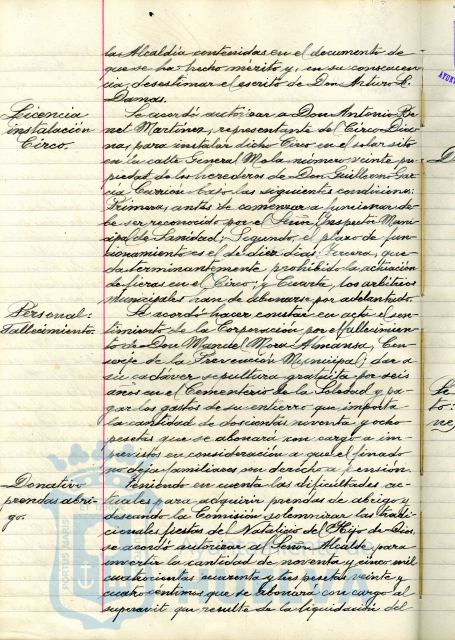 la Alcaldía contenidas en el documento de
que se ha hecho mérito y, en su consecuen-
cia, desestimar el escrito de Don Arturo R.
Damas.
Licencia
instalación
Circo.
Se acordó autorizar a Don Antonio Be-
net Martínez, representante del Circo
para instalar dicho Circo en el solar sito
en la calle General Mola número veinte pro-
piedad de los herederos de Don Guillermo Gar-
cía Carrión bajo las siguientes condiciones:
Primera, antes de comenzar a funcionar de-
be ser reconocido por el Señor Inspector Muni-
cipal de Sanidad; Segundo, el plazo de fun-
cionamiento es el de diez días; Tercera, que-
da terminantemente prohibida la actuación
de fieras en el Circo; y Cuarta, los arbitrios
municipales han de abonarse por adelantado.
Personal:
Fallecimiento.
Se acordó hacer constar en acta el sen-
timiento de la Corporación por el fallecimien-
to de Don Manuel Mora Almansa, Con-
serje de la Prevención Municipal; dar a
su cadáver sepultura gratuita por seis
años en el Cementerio de la Soledad y pa-
gar los gastos de su entierro que importa
la cantidad de doscientas noventa y ocho
pesetas que se abonará con cargo a im-
previstos en consideración a que el finado
no deja familiares con derecho a pensión.
Donativo
prendas abri-
go.
Teniendo en cuenta las dificultades ac-
tuales para adquirir prendas de abrigo y
deseando la Comisión solemnizar las tradi-
cionales fiestas del Natalicio del Hijo de Dios,
se acordó autorizar al Señor Alcalde para
invertir la cantidad de noventa y cinco mil
cuatrocientas cuarenta y tres pesetas veinte y
cuatro céntimos que se abonará con cargo al
superávit que resulte de la liquidación del
PORTUS MARIS